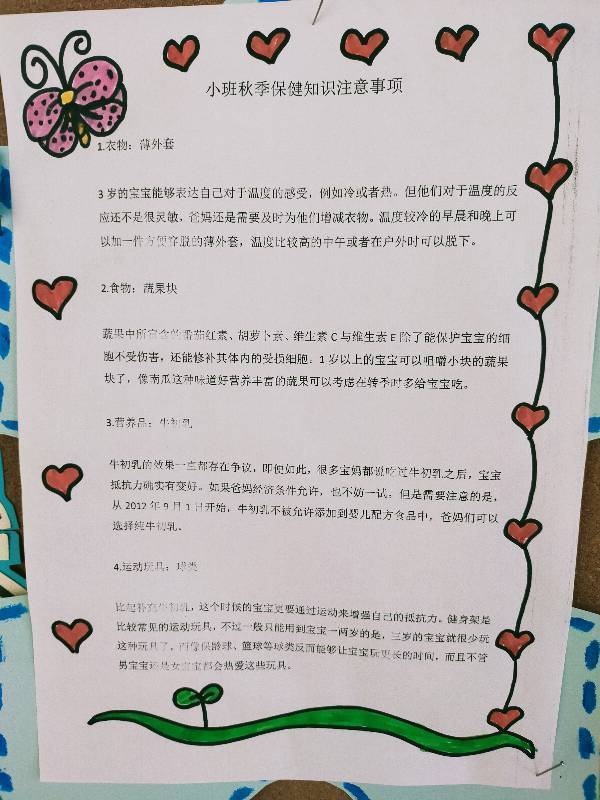 小班秋季保健知识注意事项
1.衣物：薄外套
3岁的宝宝能够表达自己对于温度的感受，例如冷或者热。但他们对于温度的反
应还不是很灵敏，爸妈还是需要及时为他们增减衣物。温度较冷的早晨和晚上可
以加一件方便穿脱的薄外套，温度比较高的中午或者在户外时可以脱下。
2.食物：蔬果块
蔬果中所富含的番茄红素、胡萝卜素、维生素C与维生素E除了能保护宝宝的细
胞不受伤害，还能修补其体内的受损细胞。1岁以上的宝宝可以咀嚼小块的蔬果
块了，像南瓜这种味道好营养丰富的蔬果可以考虑在转季时多给宝宝吃。
3.营养品：牛初乳
牛初乳的效果一直都存在争议，即便如此，很多宝妈都说吃过牛初乳之后，宝宝
抵抗力确实有变好。如果爸妈经济条件允许，也不妨一试。但是需要注意的是，
从2012年9月1日开始，牛初乳不被允许添加到婴儿配方食品中，爸妈们可以
选择纯牛初乳。
4.运动玩具：球类
比起补充牛初乳，这个时候的宝宝更要通过运动来增强自己的抵抗力。健身架是
比较常见的运动玩具，不过一般只能用到宝宝一两岁的是，三岁的宝宝就很少玩
这种玩具了，而像保龄球、篮球等球类反而能够让宝宝玩更长的时间，而且不管
男宝宝还是女宝宝都会热爱这些玩具。